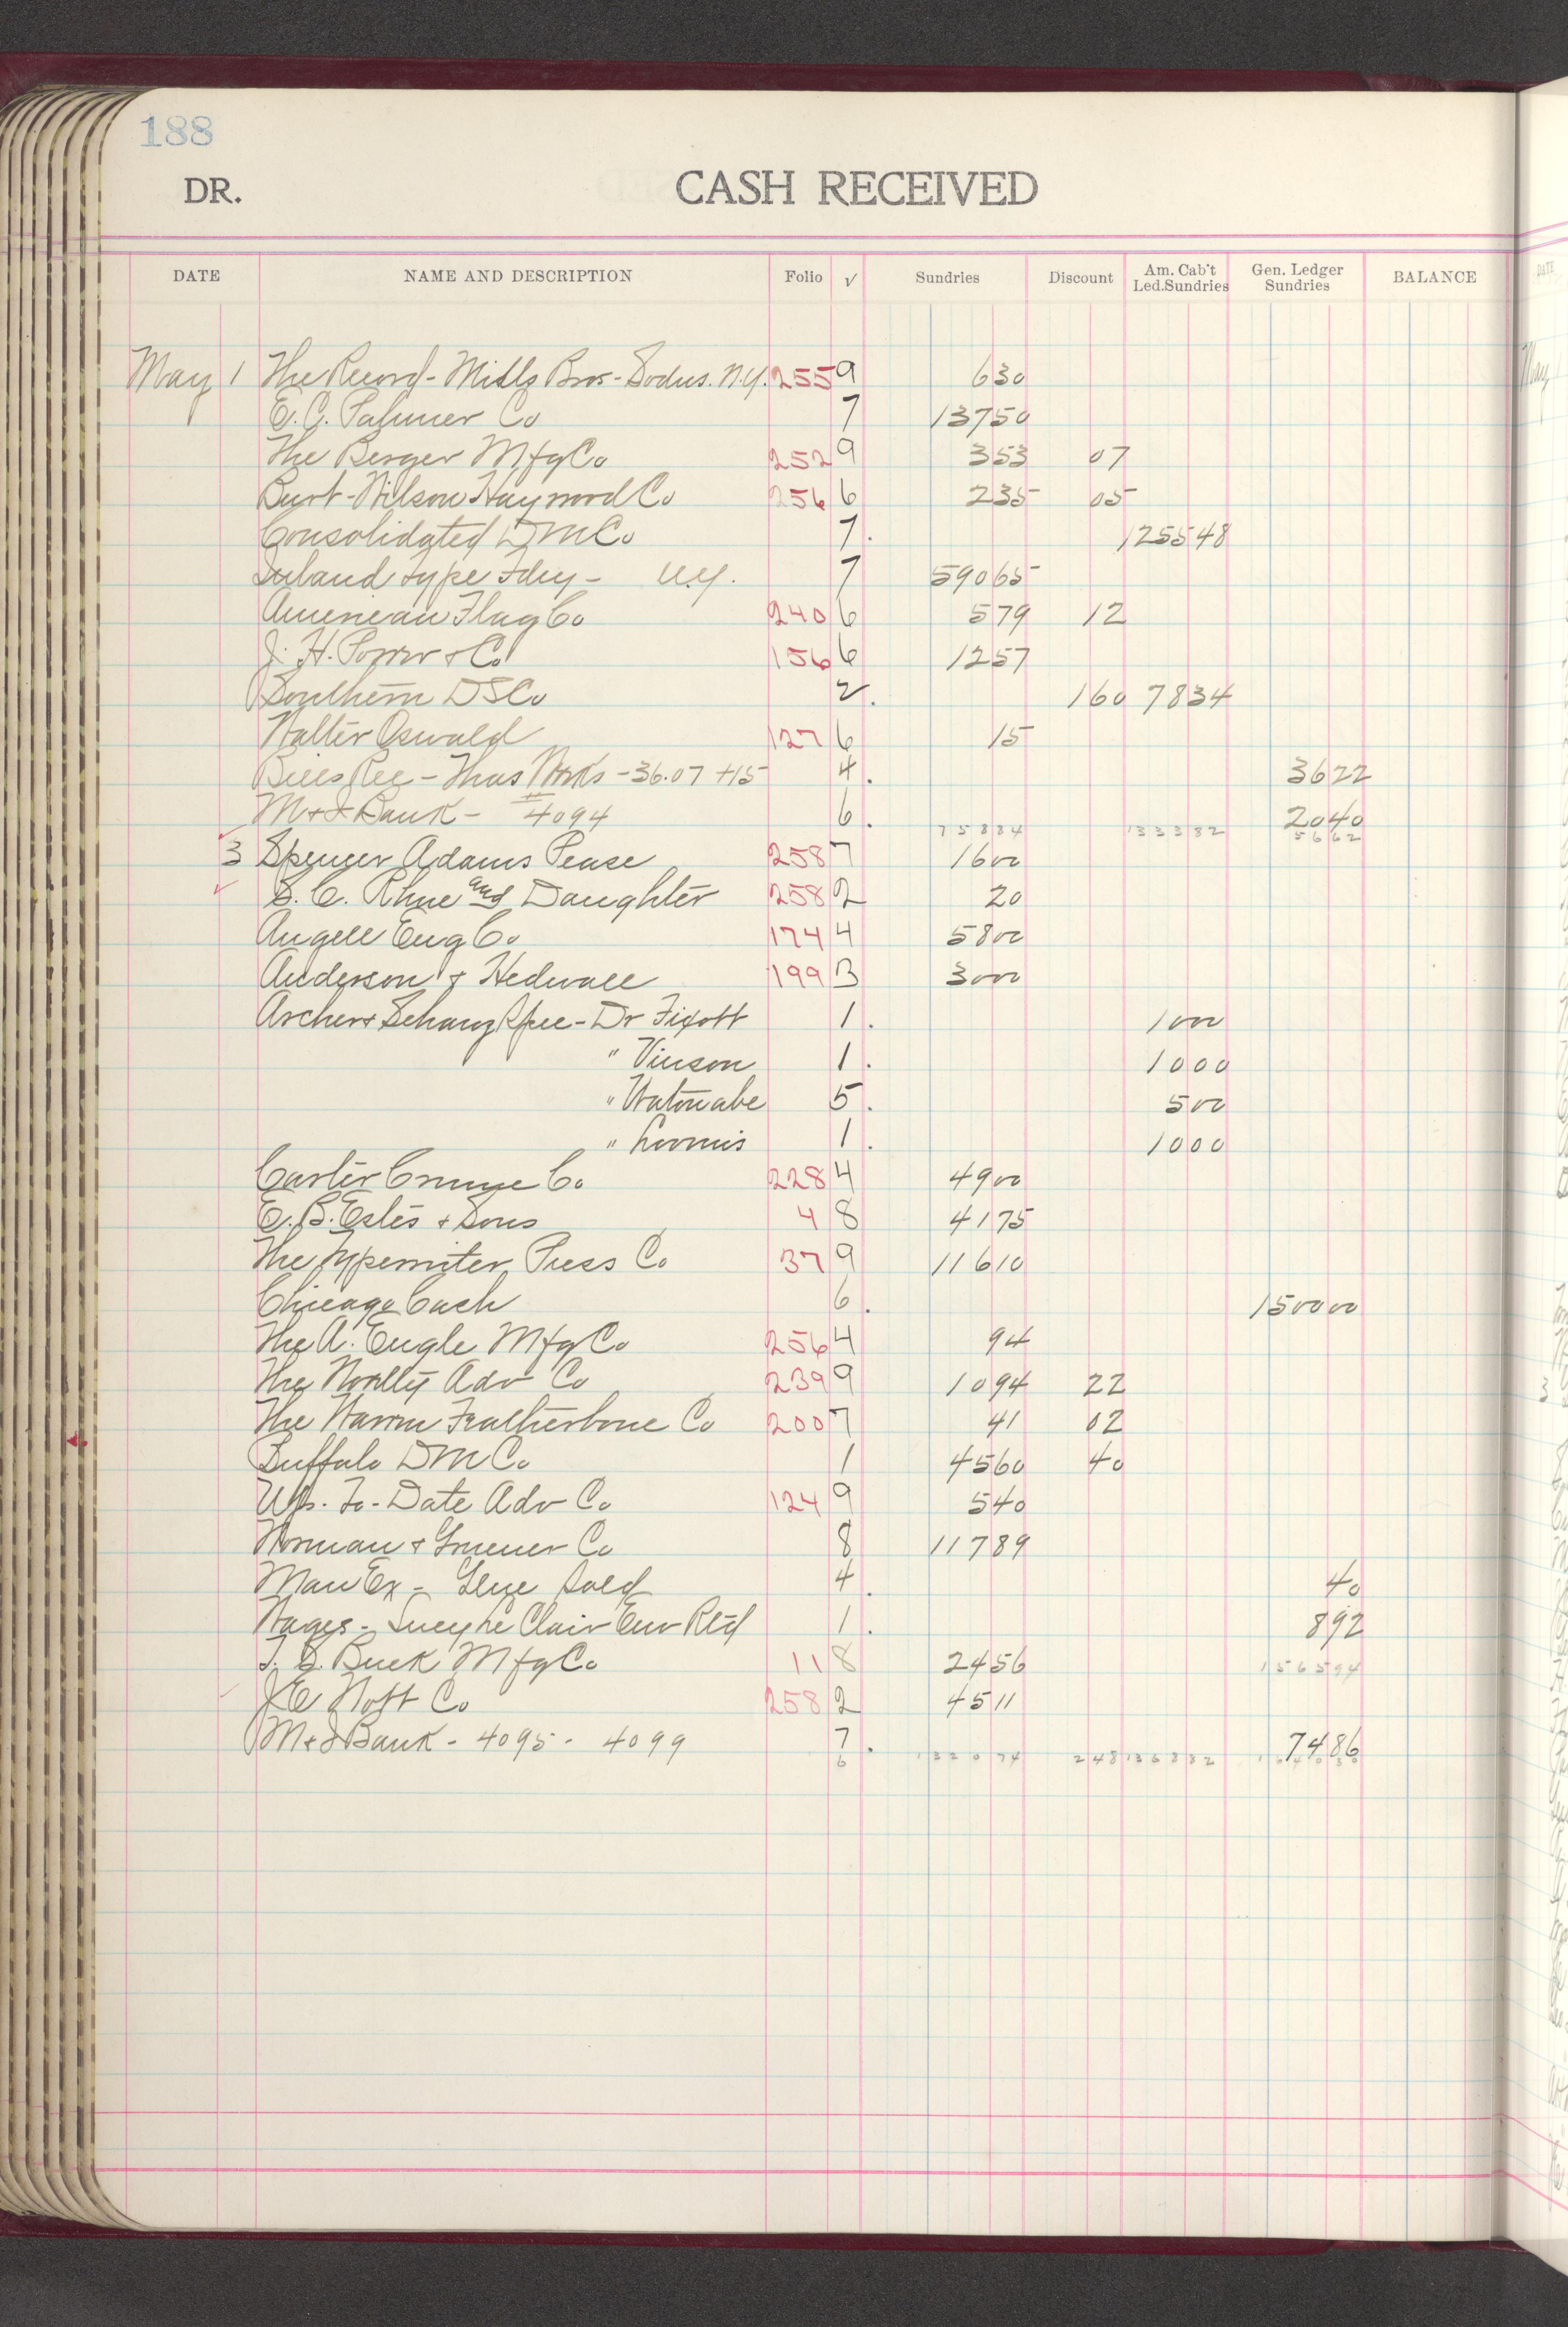 188
DR. CASH RECEIVED
DATE NAME AND DESCRIPTION Folio √ Sundries Discount Am. Cab't Led. Sundries Gen. Ledger Sundries BALANCE
May 1 The Record - Mills Bros - Sodus. N.Y. 255 9 630
E. C. Palmer Co 7 13750
The Berger Mfg Co 252 9 353 07
Burt-Wilson Hayword Co 256 6 235 05
Consolidated DM Co 7. 125548
Inland Type Fdry - N.Y. 7 59065
American Flag Co 240 6 579 12
J. H. Power & Co 156 6 1257
Southern DS Co 2. 160 7834
Walter Oswald 127 6 15
Bills Rec - Thos - 36.07 + 15 4. 3622
M+ Bank - 4094 6. 2040
75884 133382 5662
3 Spencer Adams Pease 258 7 1600
Rhue and Daughter 258 2 20
Angell Eng Co 174 4 5800
Anderson & Hedwall 199 3 3000
Archer & Schanz - Dr Fixott 1. 1000
" Vinson 1. 1000
" Watonabe 5. 500
" Loomis 1. 1000
Carter Crume Co 228 4 4900
E. B. Estes & Sons 4 8 4175
The Typewriter Press Co 37 9 11610
Chicago Cash 6. 150000
The A. Engle Mfg Co 256 4 94
The Novelty Adv Co 239 9 1094 22
The Warren Featherbone Co 200 7 41 02
Buffalo DM Co 1 4560 40
Up-To-Date Adv Co 124 9 540
Norman & Co 8 11789
Man Ex - Glue Sold 4. 40
Wages - Lucy Le Clair Env Retd 1. 892
Buck Mfg Co 11 8 2456
156594
J E Nott Co 258 2 4511
M+ Bank - 4095 - 4099 7. 7486
6 132074 248 136882